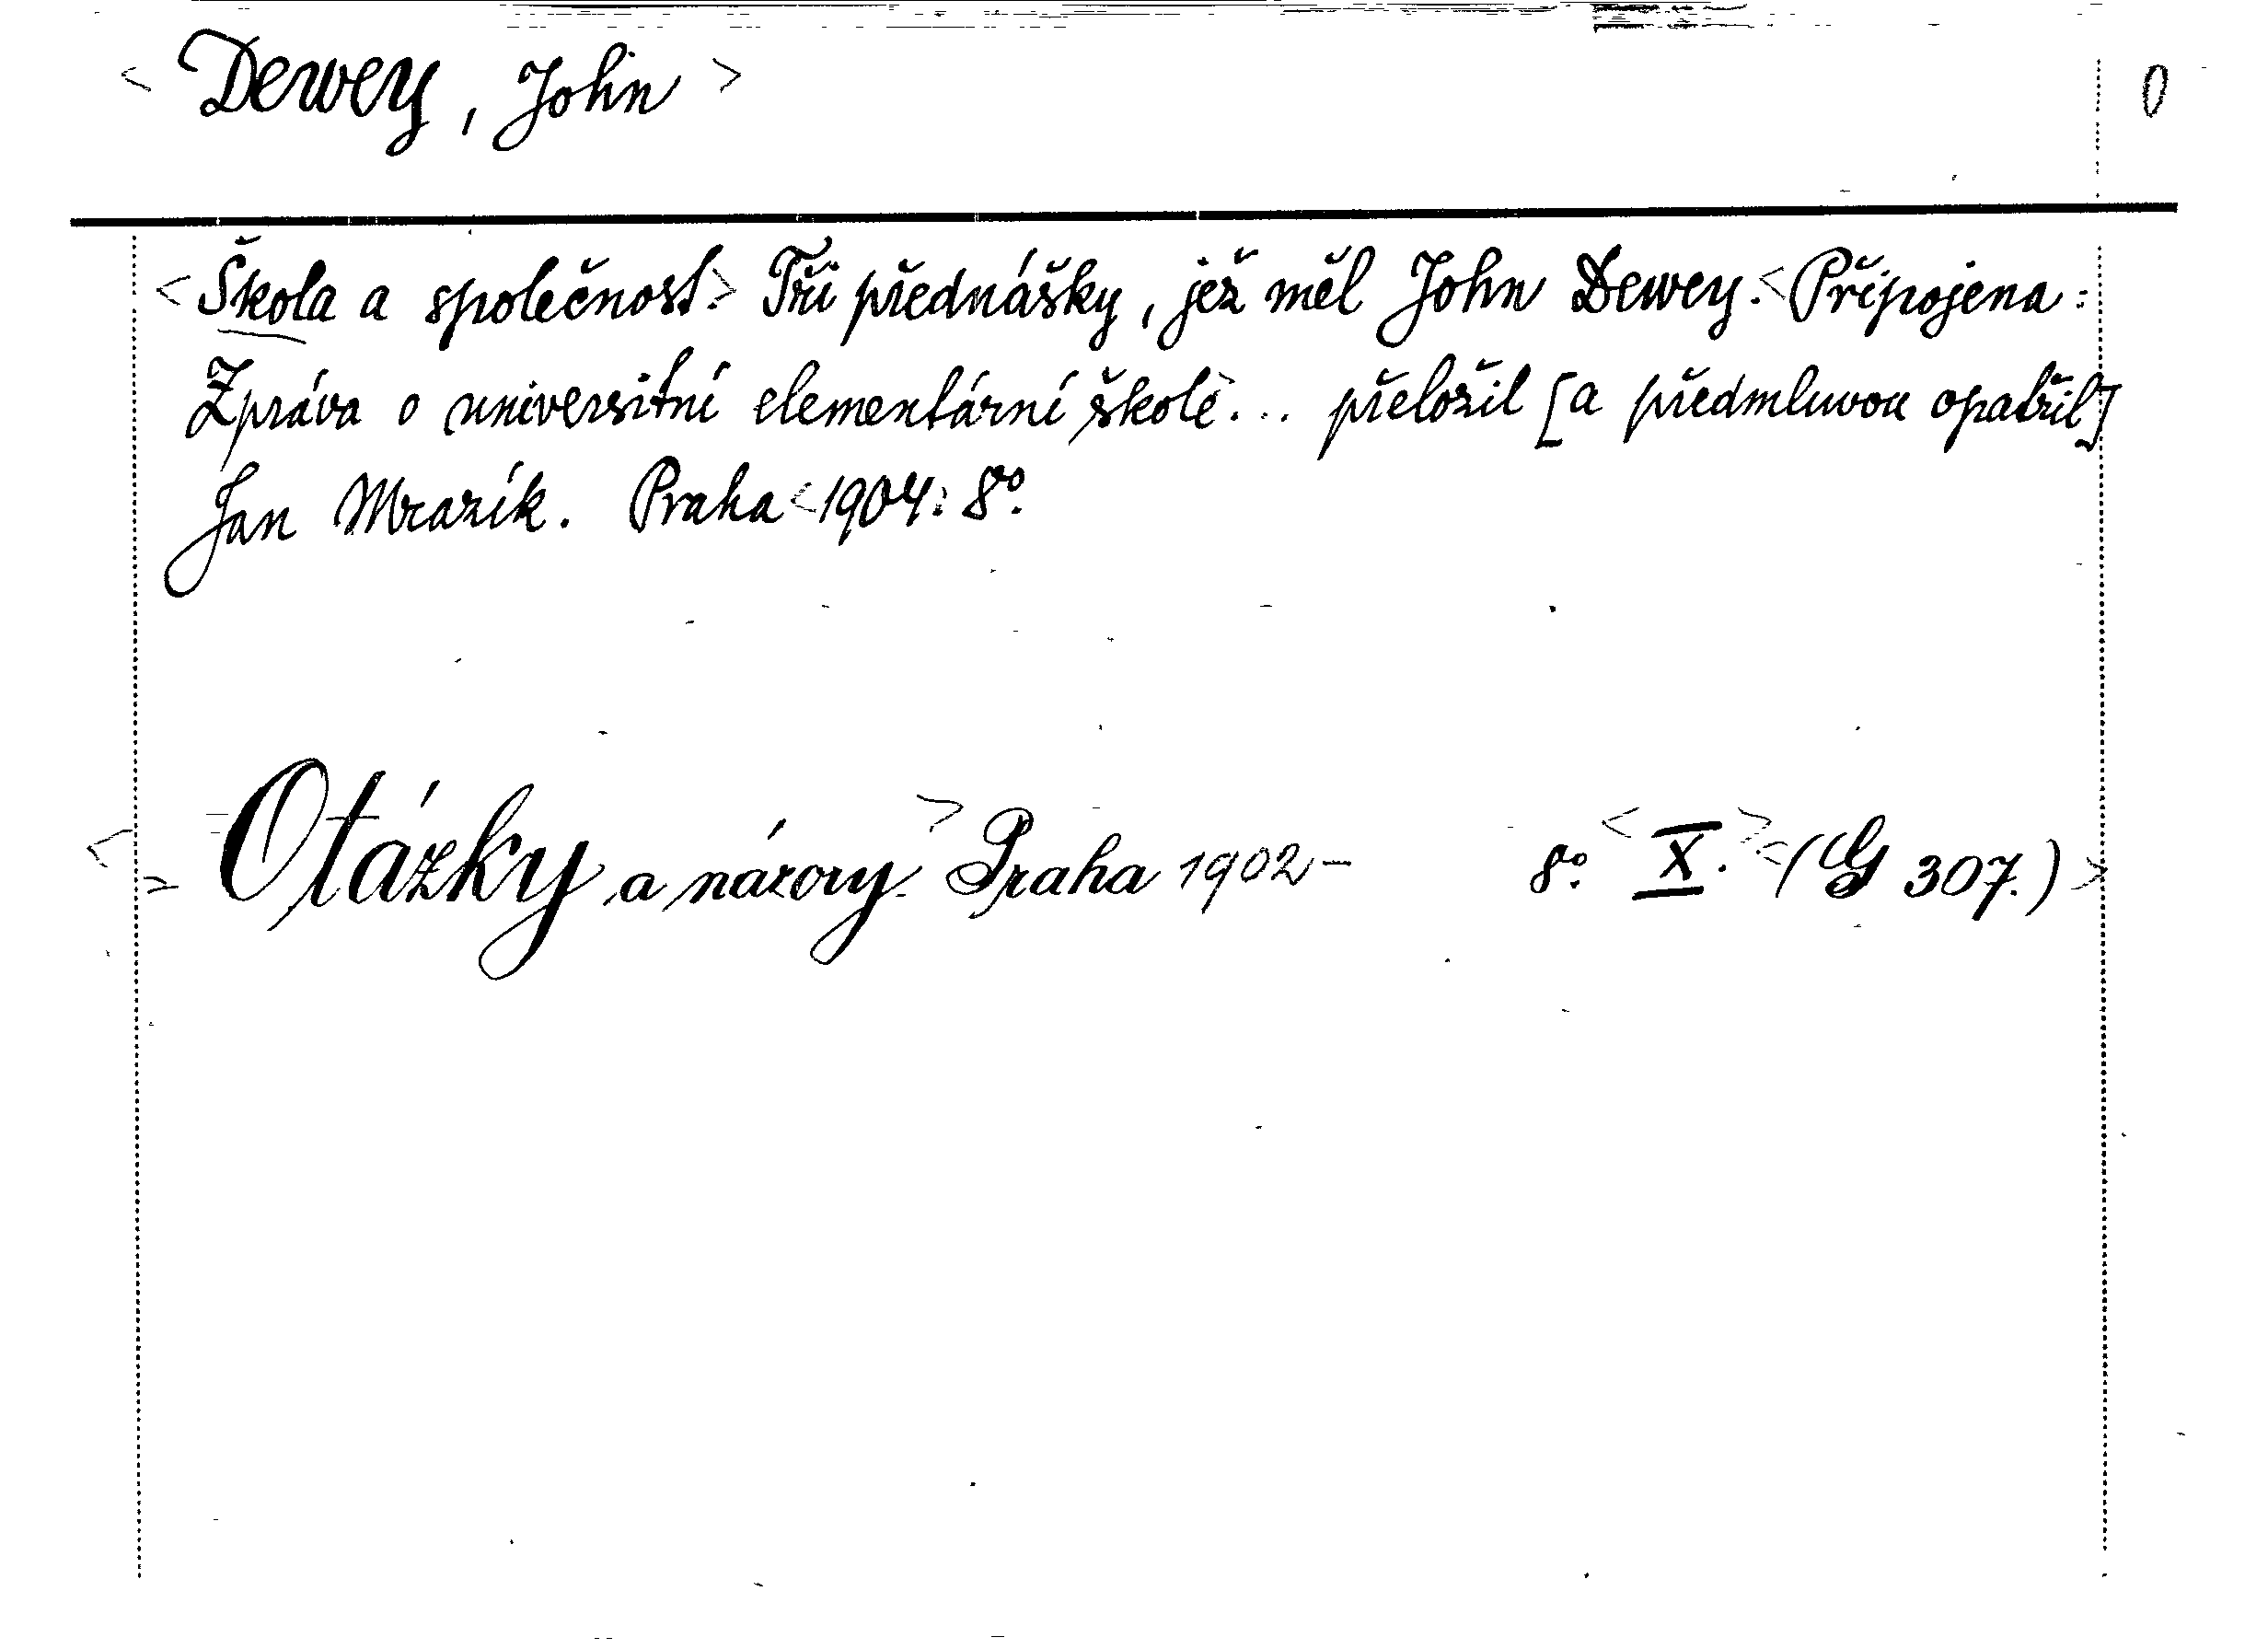 < Dewey, John > 0
< Škola a společnost. > Tři přednášky, jež měl John Dewey. < Připojena:
Zpráva o universitní elementární škole... přeložil [a předmluvou opatřil]
Jan Mrazík. Praha < 1904. 8º.
< = Otázky a názory. > Praha 1902 – 8º. < X. > < (G 307.) >